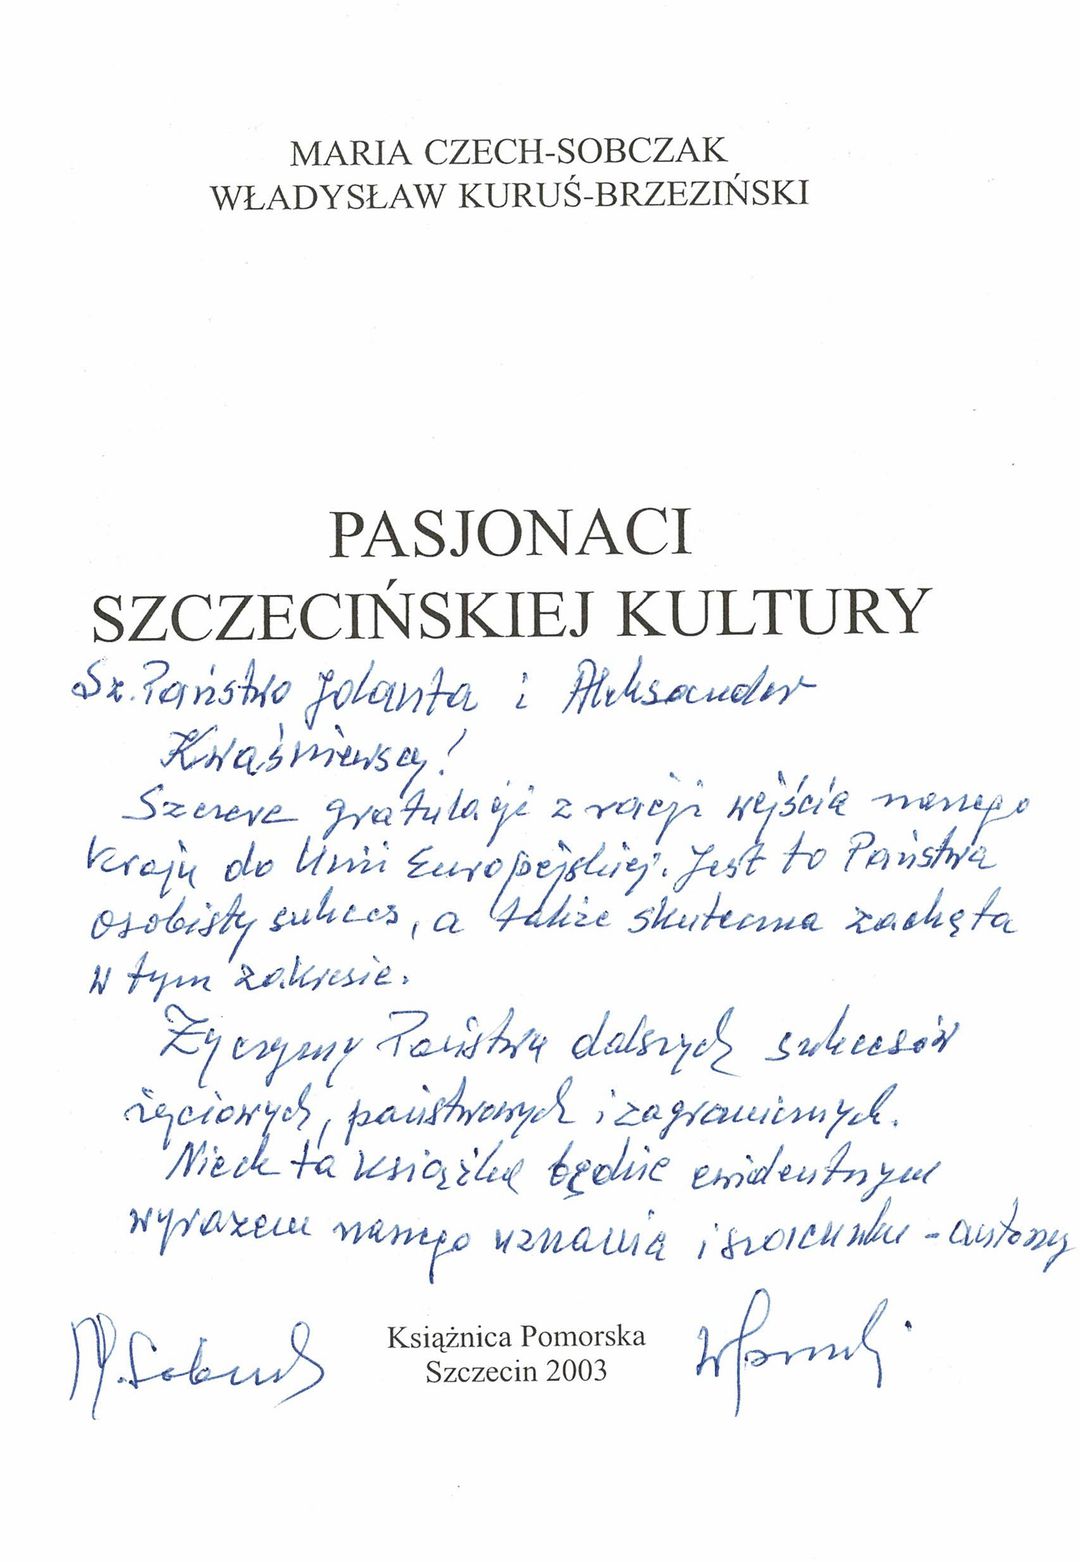 MARIA CZECH-SOBCZAK
WŁADYSŁAW KURUŚ-BRZEZIŃSKI
PASJONACI
SZCZECIŃSKIEJ KULTURY
Sz. Państwo Jolanta i Aleksander
Kwaśniewscy!
Szczere gratulacje z racji wejścia naszego
kraju do Unii Europejskiej. Jest to Państwa
osobisty sukces, a także skuteczna zachęta
w tym zakresie.
Życzymy Państwu dalszych sukcesów
życiowych, państwowych i zagranicznych.
Niech ta książka będzie ewidentnym
wyrazem naszego uznania i szacunku - autorzy
M. Sobczak
Książnica Pomorska
Szczecin 2003